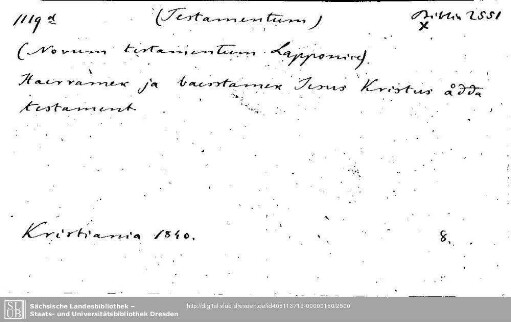 1119 d (Testamentum) Biblia 2551
x
(Novum testamentum Lapponice).
Haerramek ja baesstamek Jesus Kristus ådda
testament
Kristiania 1840. 8.
Sächsische Landesbibliothek –
Staats- und Universitätsbibliothek Dresden